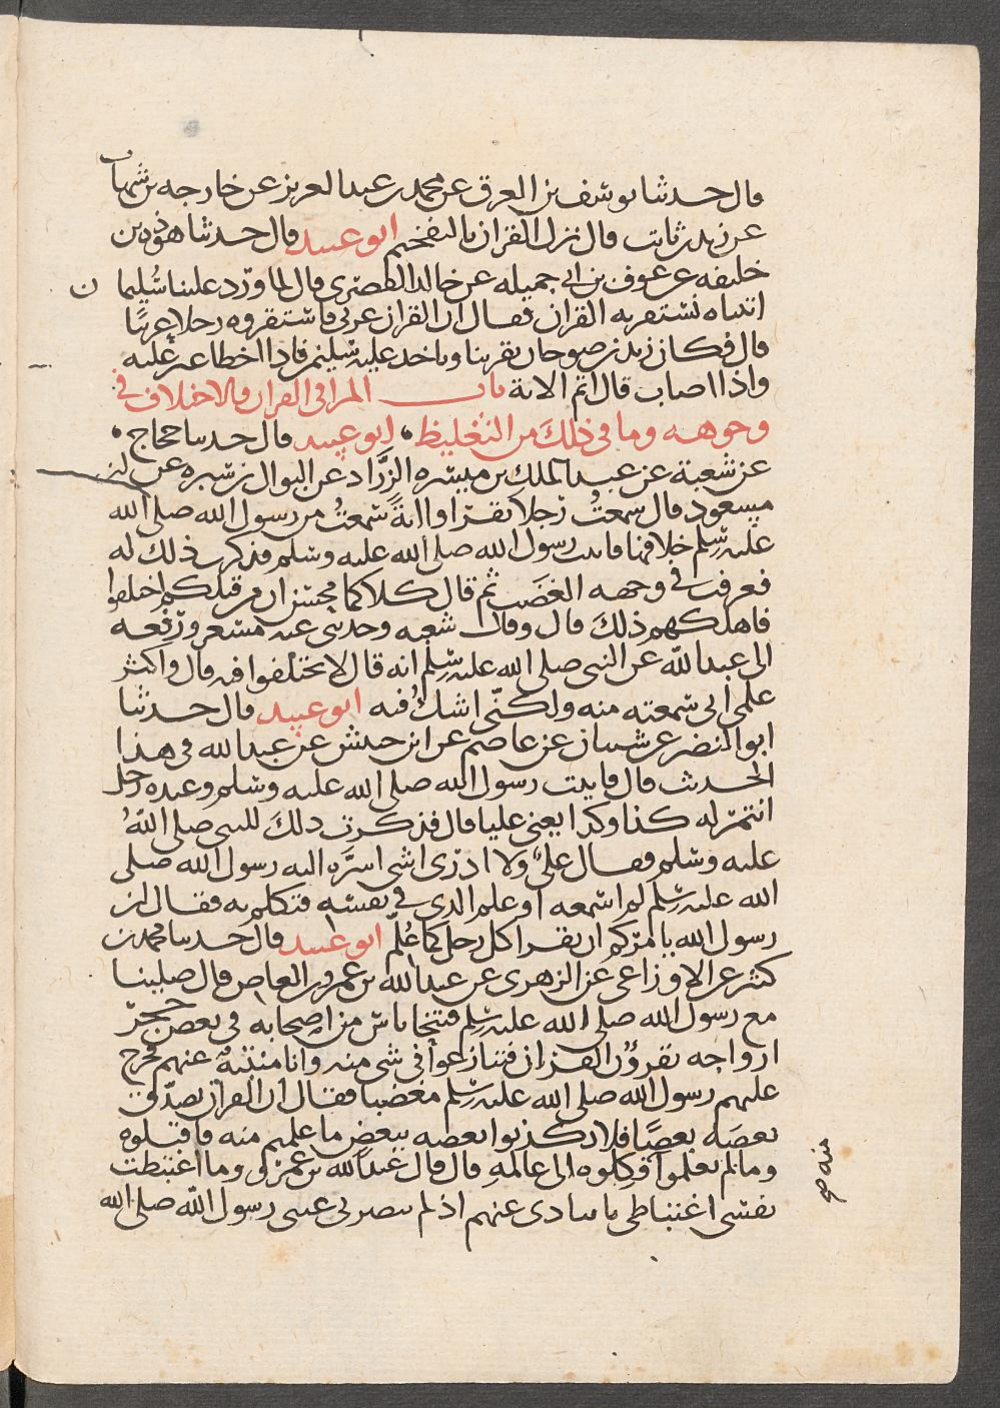 قال حدثنا يوسف بن الغرق عن محمد بن عبد العزيز عن خارجه بن شهاب
عن زيد بن ثابت قال نزل القران بالتفخيم ابو عبيد قال حدثنا هوذه بن
خليفه عن عوف بن ابي جميله عن خالد العصري قال لما ورد علينا سليما
ن
اتيناه نستقريه القران فقال ان القران عربي فاستقروه رجلا عربيا
قال فكان زيد بن صوحان يقرينا وياخذ عليه سليمن فاذا اخطا غير عليه
واذا اصاب قال ايم الله باب المرا في القران والاختلاف في
وجوهه وما في ذلك من التغليظ ابو عبيد قال حدثنا حجاج
عن شعبة عن عبد الملك بن ميسره الزراد عن النزال بن سبره عن ابن
مسعود قال سمعت رجلا يقرا اية سمعت من رسول الله صلى الله
عليه وسلم خلافها فاتيت رسول الله صلى الله عليه وسلم فذكرت ذلك له
فعرفت في وجهه الغضب ثم قال كلاكما محسن ان من قبلكم اختلفوا
فاهلكهم ذلك قال وقال شعبه وحدثني عنه مسعر ورفعه
الى عبد الله عن النبي صلى الله عليه وسلم انه قال لا تختلفوا فيه قال واكثر
علمي اني سمعته منه ولكني اشك فيه ابو عبيد قال حدثنا
ابو النضر عن شيبان عن عاصم عن زر بن حبيش عن عبد الله في هذا
الحديث قال فاتيت رسول الله صلى الله عليه وسلم وعنده رجل
له كذا وكذا يعني عليا قال فذكرت ذلك للنبي صلى الله
عليه وسلم فقال علي ولا ادري اشي اسره اليه رسول الله صلى
الله عليه وسلم لم اسمعه او علم الذي في نفسه فتكلم به فقال ان
رسول الله يامركم ان يقرا كل رجل كما علم ابو عبيد قال حدثنا محمد بن
كثير عن الاوزاعي عن الزهري عن عبد الله بن عمرو بن العاص قال صلينا
مع رسول الله صلى الله عليه وسلم فتنحا ناس من اصحابه في بعض حجر
ازواجه يقرؤن القران فتنازعوا في شي منه وانا منتبذ عنهم فخرج
عليهم رسول الله صلى الله عليه وسلم مغضبا فقال ان القران يصدق
بعضه بعضا فلا تكذبوا بعضه ببعض ما علمتم منه فاقبلوه
وما لم تعلموا فكلوه الى عالمه قال قال عبد الله بن عمرو وما اغتبطت
منه صح
نفسي اغتباطي بانتباذي عنهم اذ لم تصرني عيني رسول الله صلى الله